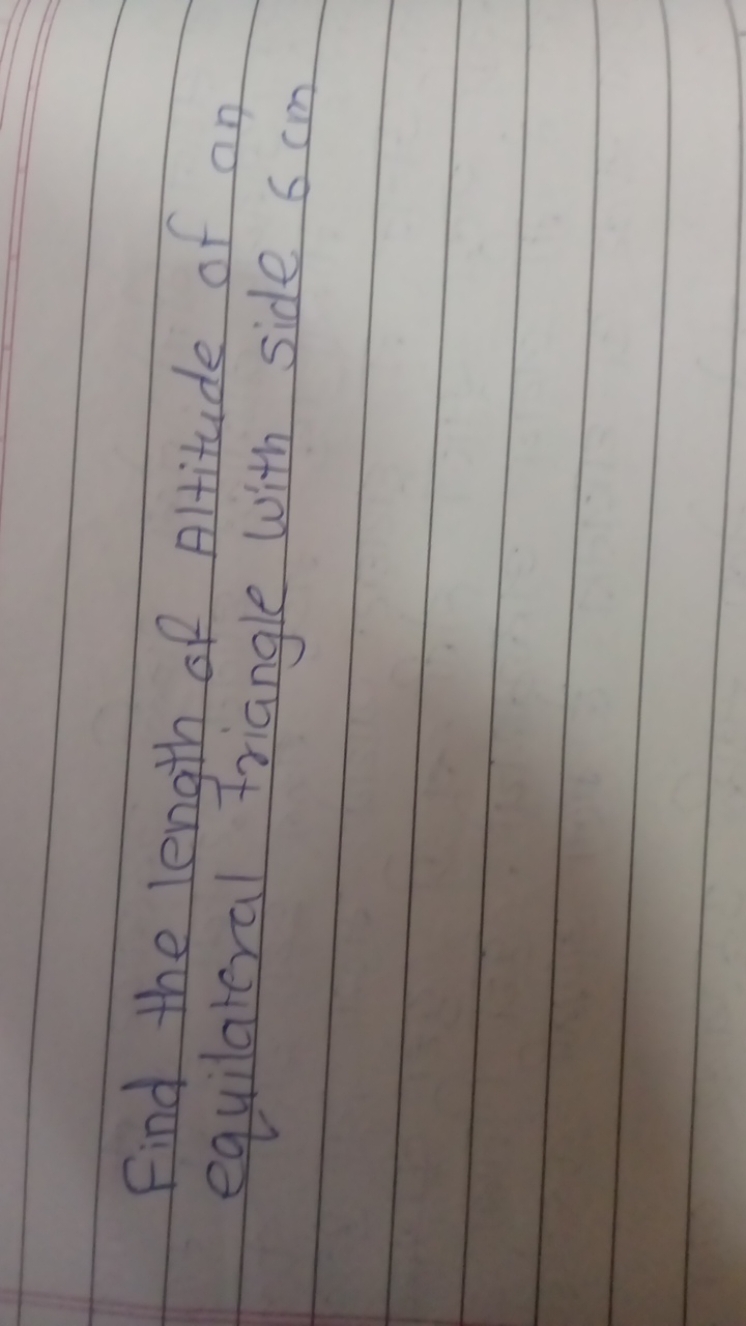 Find the length of Altitude of an
equilateral triangle with side 6 cm